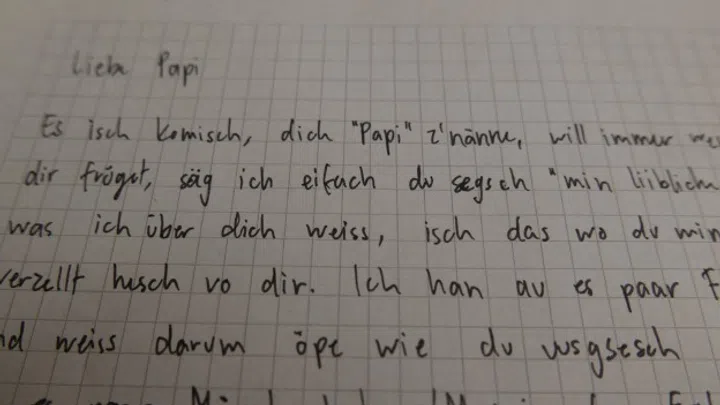 Liebe Papi
Es isch komisch, dich "Papi" z'nänne, will immer
dir fröget, säg ich eifach du segsch "min liiblich
was ich über dich weiss, isch das wo du min
verzellt hesch vo dir. Ich han au es paar F
nd weiss darum öpe wie du usgsesch